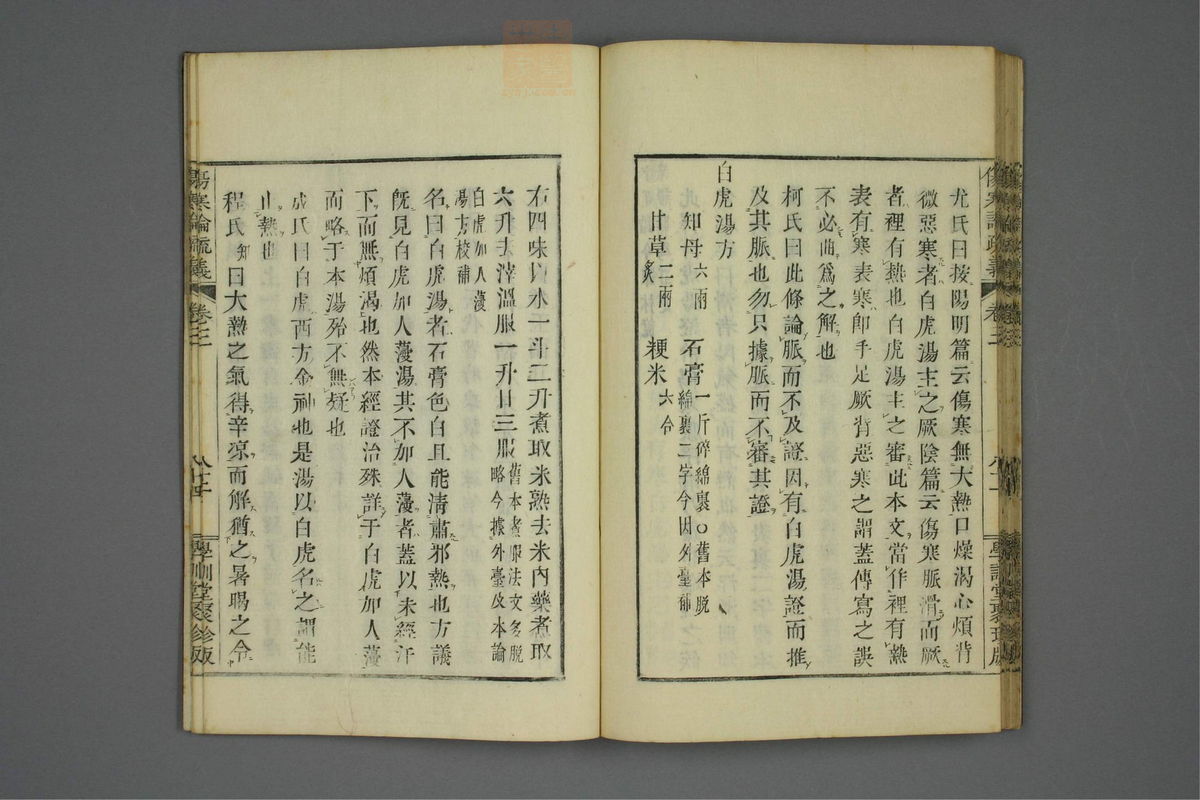 尤氏曰按陽明篇云傷寒無大熱口燥渴心煩背
微惡寒者白虎湯主之厥陰篇云傷寒脈滑而厥
者裡有熱也白虎湯主之審此本文當作裡有熱
表有寒表寒卽手足厥背惡寒之謂蓋傳寫之誤
不必曲爲之解也
柯氏曰此條論脈而不及證因有白虎湯證而推
及其脈也勿只據脈而不審其證
白虎湯方
知母六兩 石膏一斤碎綿裹〇舊本脫綿裹二字今因外臺補
甘草二兩炙 粳米六合
傷寒論疏義 卷三 學訓堂聚珍版
右四味以水一斗二升煮取米熟去米內藥煮取
六升去滓溫服一升日三服舊本煮服法文多脫略今據外臺及本論
白虎加人薓湯方校補
名曰白虎湯者石膏色白且能清肅邪熱也方議
旣見白虎加人薓湯其不加人薓者蓋以未經汗
下而無煩渴也然本經證治殊詳于白虎加人薓
而略于本湯殆不無疑也
成氏曰白虎西方金神也是湯以白虎名之謂能
止熱也
程氏知曰大熱之氣得辛凉而解猶之暑暍之令
傷寒論疏義 卷三 八十四 學訓堂聚珍版